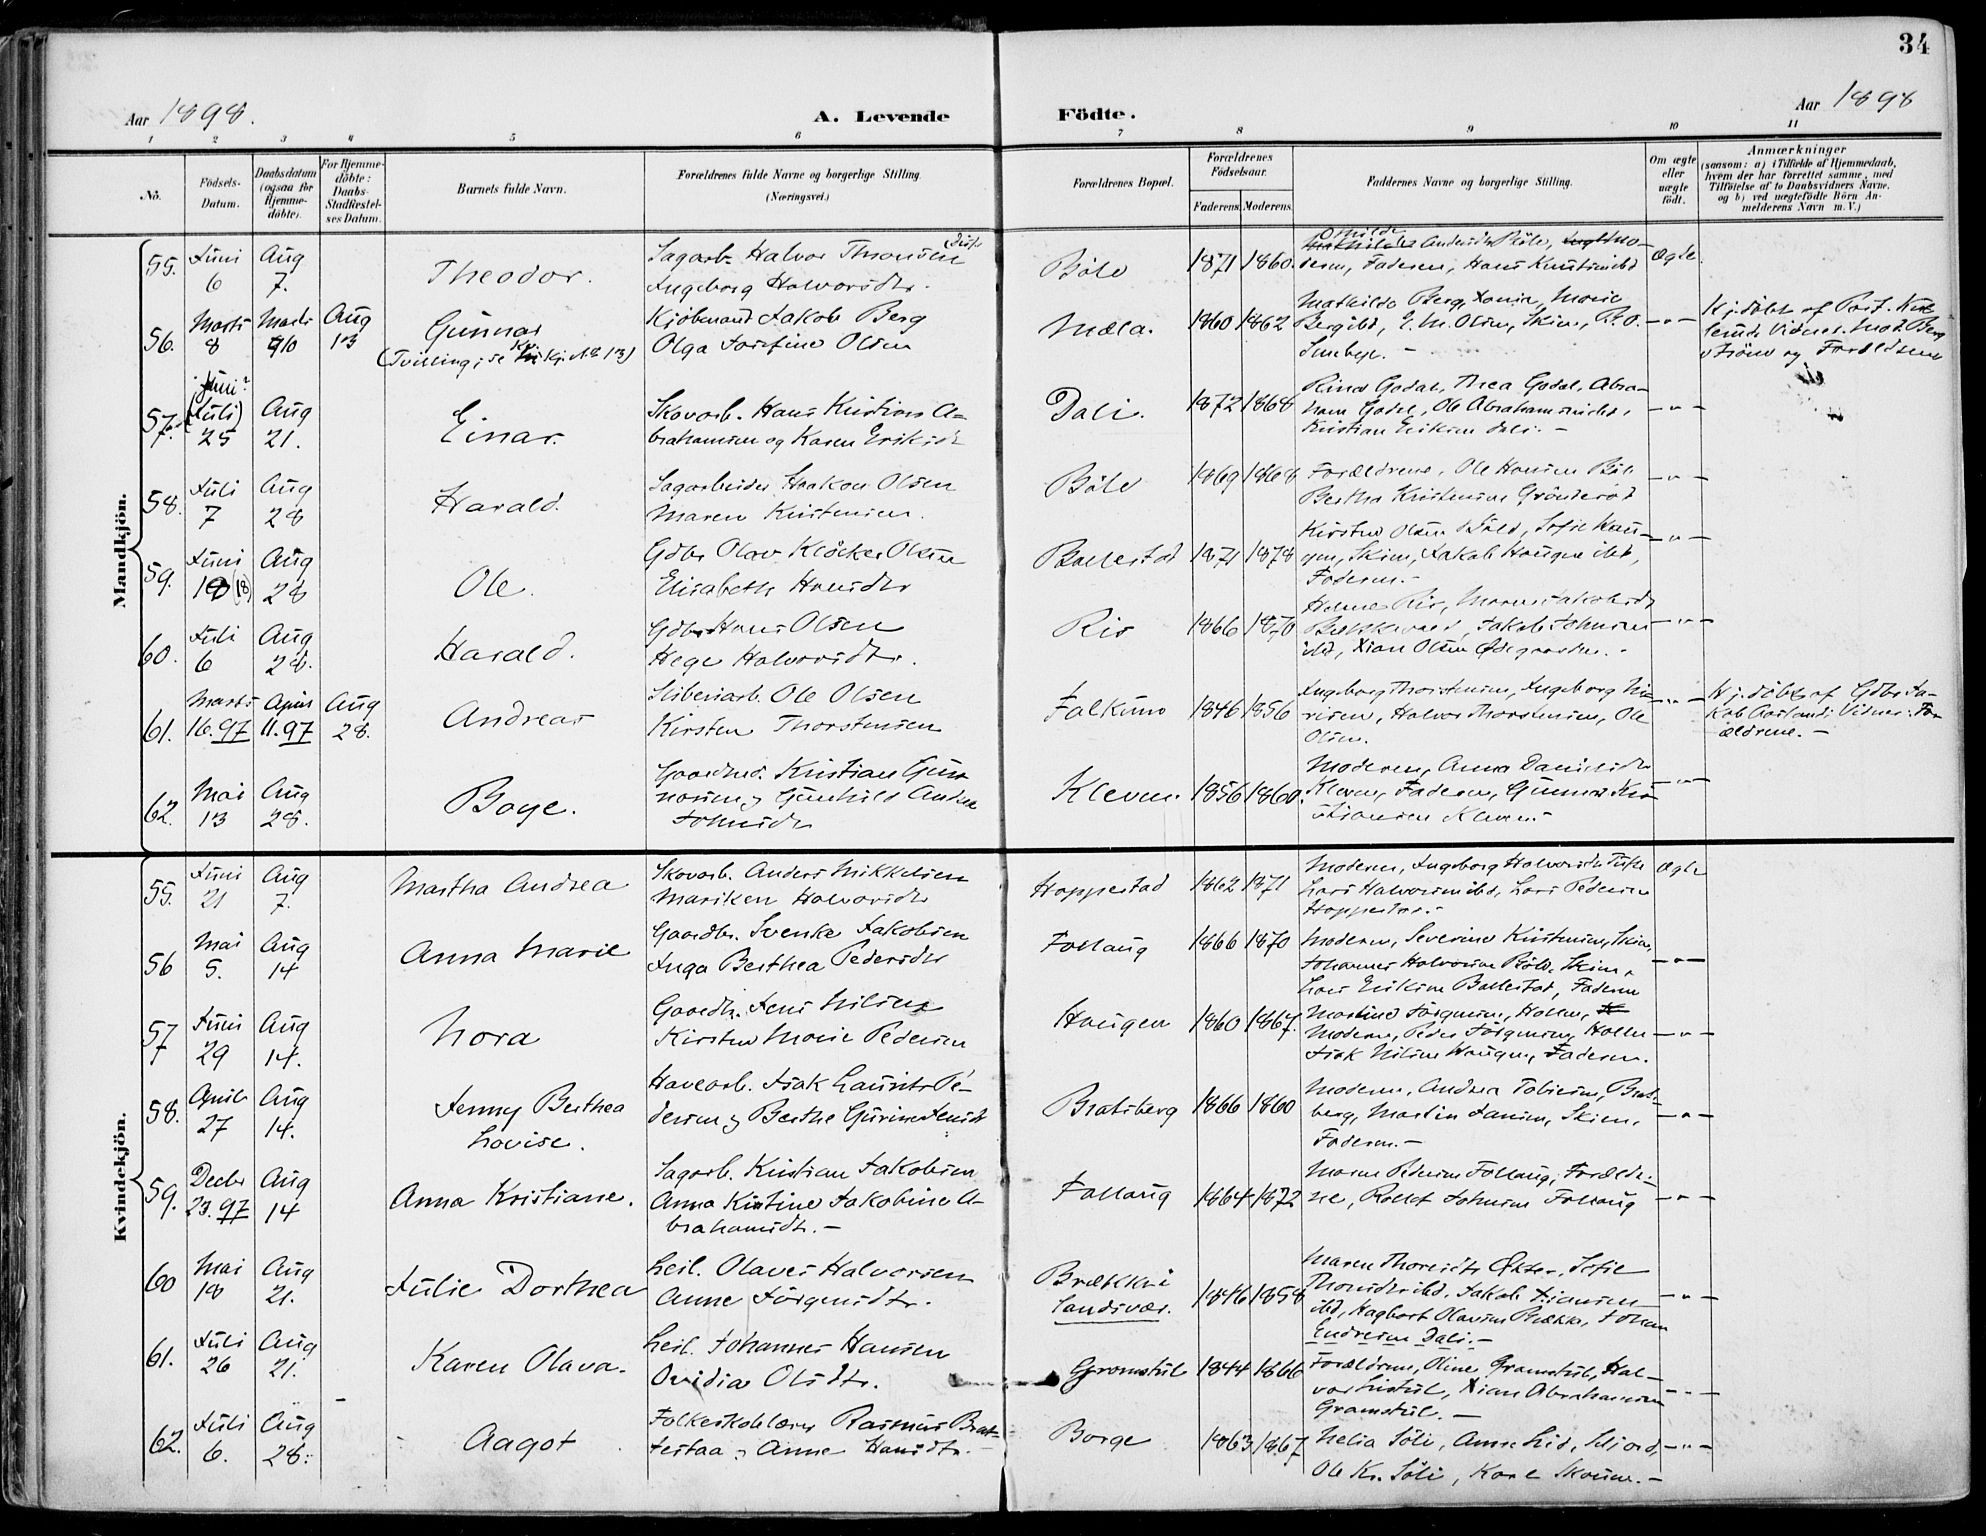 34
Aar 1898.
A. Levende Födte.
Aar 1898
1 2 3 4 5 6 7 8 9 10 11
No.
Födsels-Datum.
Daabsdatum (ogsaa for Hjemme-döbte).
For Hjemme-döbte: Daabs-Stadfæstel-ses Datum.
Barnets fulde Navn.
Forældrenes fulde Navne og borgerlige Stilling.
(Næringsvei.)
Forældrenes Bopæl.
Forældrenes Födselsaar.
Faderens. Moderens.
Faddernes Navne og borgerlige Stilling.
Om ægte eller uægte födt.
Anmærkninger
(saasom: a) i Tilfælde af Hjemmedaab,
hvem der har forrettet samme, med
Tilföielse af to Daabsvidners Navne,
og b) ved uægtefödte Börn An-
melderens Navn m. V.)
Mandkjön.
55. Juni 6 Aug 7. Theodor. Sagarb. Halvor Thorsen
Ingeborg Halvorsdtr. Böle 1871 1860. Ægte
deren, Faderen, Hans
56. Marts 8 Marts 10 Aug 13 Gunnar
(Tvilling, se Kj. No 13)
Kjöbmand Jakob Berg
Olga Josefine Olsen
Mæla. 1860 1862 Mathilde Berg, Marie
Berg ibd, E. M. Olsen, Skien, P. O.
—"—
Kj.döbt af
Vidner
og Forældrene
57. Juni? (Juli) 25 Aug 21. Einar. Skovarb. Hans Kristian A-
brahamsen og Karen Eriksdtr
Dali. 1872 1868 Godal, Thea Godal, Abra-
ham Godal, Ole Abrahamsen ibd,
Kristian Eriksen Dali.—
—"—
58. Juli 7 Aug 28 Harald. Sagarbeider Haakon Olsen
Maren Kristensen.
Böle 1869 1868 Forældrene, Ole Hansen Böle
Bertha Kristensen Grönderöd
—"—
59. Juni 18 (18) Aug 28 Ole. Gdbr Olav Klöcker Olsen
Elisabeth Hansdtr
Bollestad 1871 1878 Kirsten Olsen Böle, Sofie Hau-
gen, Skien, Jakob Haugen ibd,
Faderen.—
—"—
60. Juli 6 Aug 28. Harald. Gdbr Hans Olsen
Hege Halvorsdtr.
Ris 1866 1870 Ris, Maren Jakobsdtr
Jakob Johnsen
ibd, Xian Olsen Ödegaarden.—
—"—
61. Marts 16.97 April 11.97 Aug 28. Andreas Sliberiarb. Ole Olsen
Kirsten Thorstensen
Falkum 1846 1856 Ingeborg Thorstensen, Ingeborg
Halvor Thorstensen, Ole
Olsen.
—"—
Kj.döbt af Gdbr Ja-
kob Aarland: Vidner: For-
ældrene.—
62. Mai 13 Aug 28. Boye. Gaardbr. Kristian Gun-
narsen og Gunhild Andrea
Johnsdtr
Kleven. 1856 1860. Moderen, Anna Danielsdtr
Kleven, Faderen, Gunnar Kri-
stiansen Kleven.—
—"—
Kvindekjön.
55. Juni 21 Aug 7. Martha Andrea Skovarb. Anders Mikkelsen
Mariken Halvorsdtr
Hoppestad 1862 1871 Moderen, Ingeborg Halvorsdtr
Lars Halvorsen ibd, Lars Pedersen
Hoppestad.—
Ægte
56 Mai 5. Aug 14 Anna Marie Gaardbr. Svenke Jakobsen
Inga Berthea Pedersdtr
Follaug 1866 1870 Moderen, Severine Kristensen, Skien,
Johannes Halvorsen Böle, Skien,
Lars Eriksen Bollestad, Faderen
—"—
57 Juni 29 Aug 14. Nora Gaardbr. Jens Nilsen
Kirsten Marie Pedersen
Haugen 1860 1867. Martine Jörgensen, Holen,
Moderen, Peder Jörgensen, Holen
Isak Nilsen Haugen, Faderen.
—"—
58. April 27 Aug 14. Jenny Berthea
Lovise.
Havearb. Isak Laurits Pe-
dersen og Berthe Gurine Jensdtr
Bratsberg 1866 1860 Moderen, Andrea Tobiesen, Brats-
berg, Martin Jansen, Skien,
Faderen.—
—"—
59. Decbr 23.97 Aug 14 Anna Kristiane. Sagarb. Kristian Jakobsen
Anna Kristine Jakobine A-
brahamsdtr.—
Follaug 1864 1872 Maren Pedersen Follaug, Forældre-
ne, Rollef Johnsen Follaug
—"—
60 Mai 18 Aug 21. Julie Dorthea Leil. Olaves Halvorsen
Anne Jörgensdtr.
Brækka i
Landsvær.
1846 1858 Maren Thorsdtr Sofie
Thorsdtr ibd, Jakob Xiansen
ibd, Hagbart Olavesen Brække, Johan
Endresen Dali.—
—"—
61. Juli 26 Aug 21. Karen Olava. Leil. Johannes Hansen
Ovidia Olsdtr.
Gromstul 1844 1866 Forældrene, Oline Gromstul, Hal-
vor Xian Abrahamsen
Gromstul.—
—"—
62. Juli 6. Aug 28. Aagot Folkeskolelærer Rasmus Brat-
testaa og Anne Hansdtr.—
Borge 1863 1867 Helia Söli, Anne Lid,
Ole Kr. Söli, Karl Skoven.—
—"—